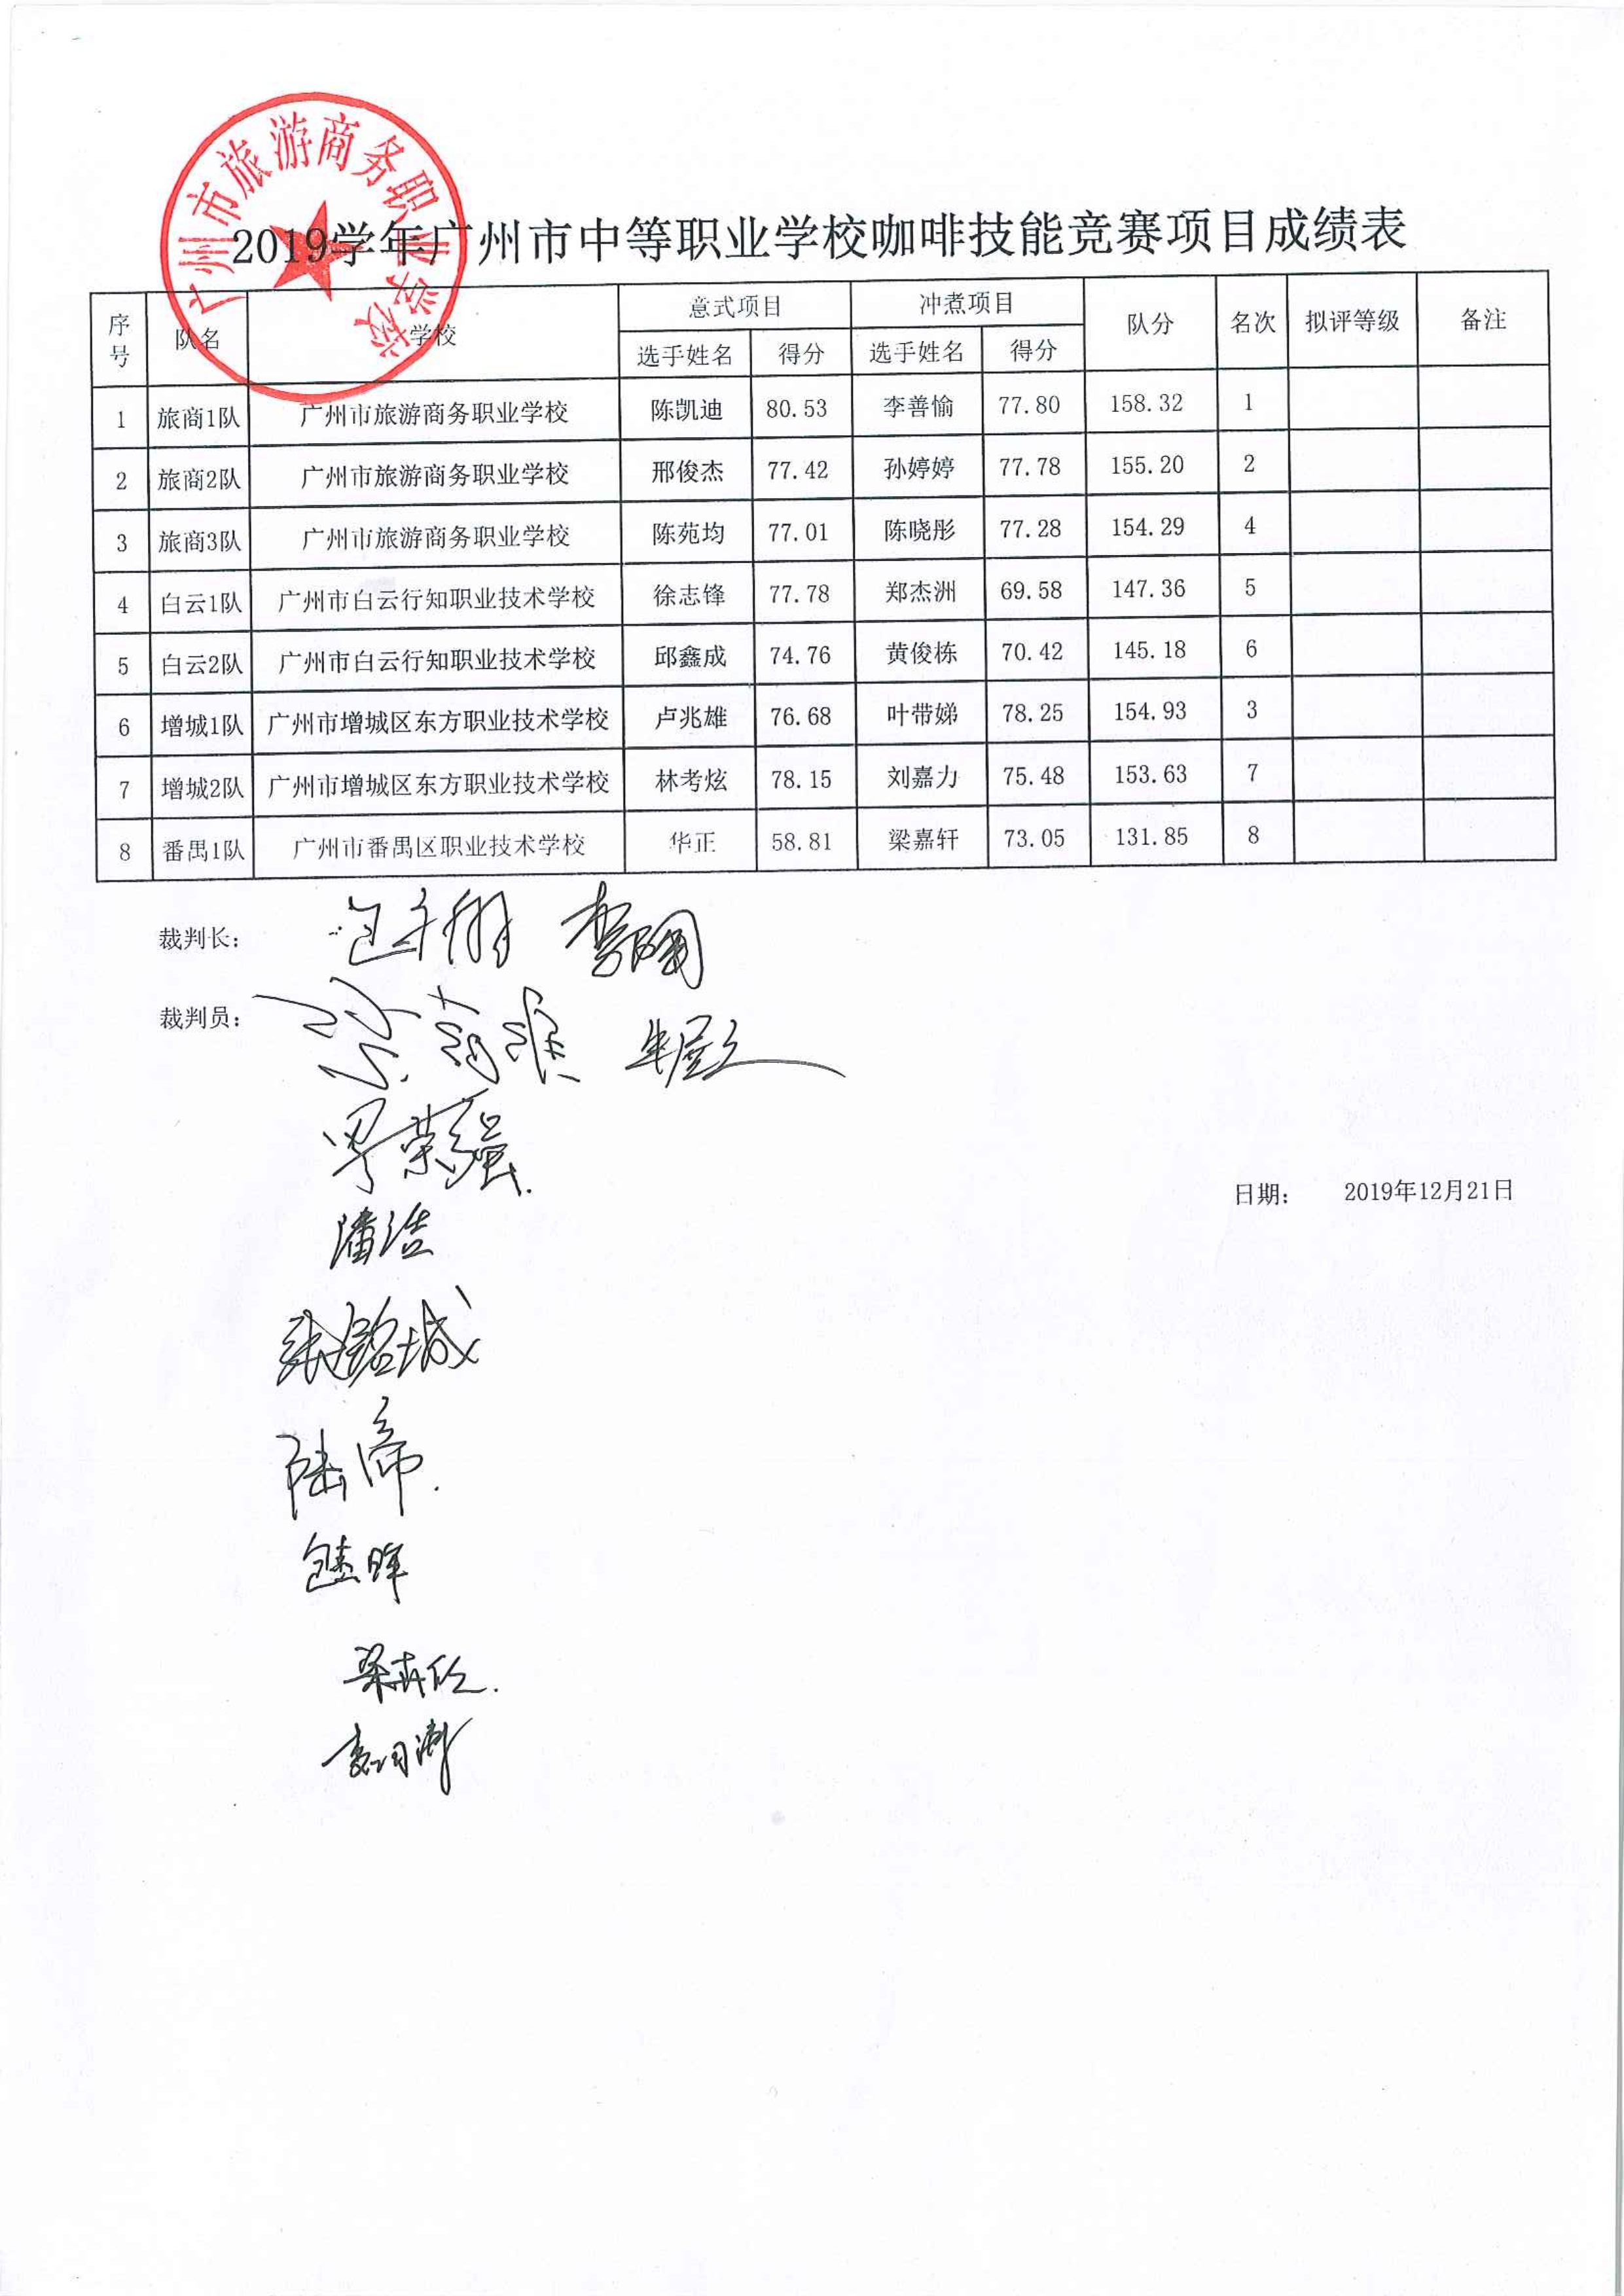 广州市旅游商务职业学校
2019学年广州市中等职业学校咖啡技能竞赛项目成绩表
序号 队名 学校 意式项目 冲煮项目 队分 名次 拟评等级 备注
选手姓名 得分 选手姓名 得分
1 旅商1队 广州市旅游商务职业学校 陈凯迪 80.53 李善愉 77.80 158.32 1
2 旅商2队 广州市旅游商务职业学校 邢俊杰 77.42 孙婷婷 77.78 155.20 2
3 旅商3队 广州市旅游商务职业学校 陈苑均 77.01 陈晓彤 77.28 154.29 4
4 白云1队 广州市白云行知职业技术学校 徐志锋 77.78 郑杰洲 69.58 147.36 5
5 白云2队 广州市白云行知职业技术学校 邱鑫成 74.76 黄俊栋 70.42 145.18 6
6 增城1队 广州市增城区东方职业技术学校 卢兆雄 76.68 叶带娣 78.25 154.93 3
7 增城2队 广州市增城区东方职业技术学校 林考炫 78.15 刘嘉力 75.48 153.63 7
8 番禺1队 广州市番禺区职业技术学校 华正 58.81 梁嘉轩 73.05 131.85 8
裁判长:
裁判员:
日期: 2019年12月21日
潘洁
张铭城